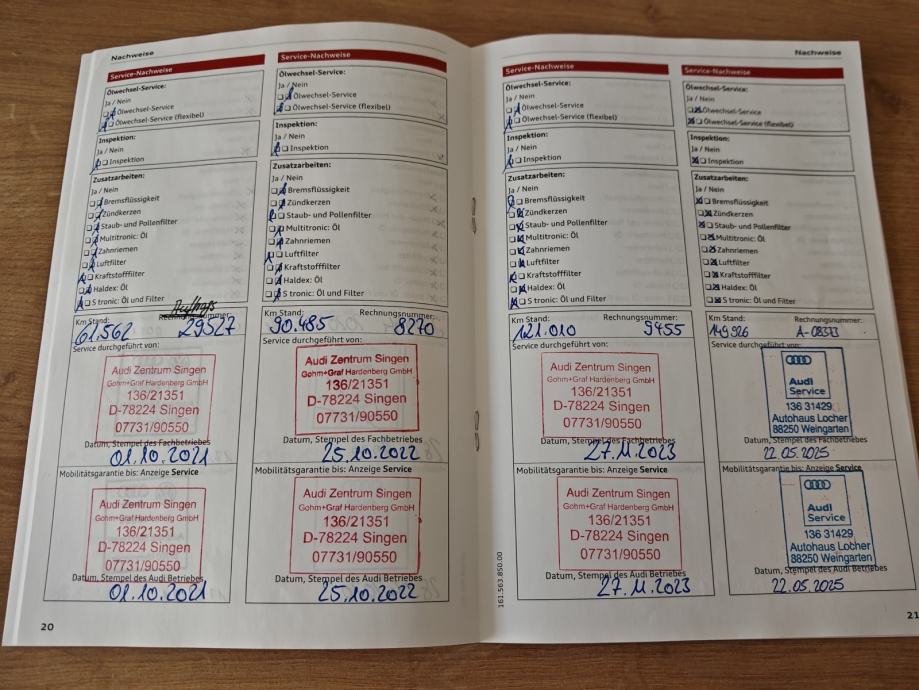 Nachweise
Service-Nachweise
Ölwechsel-Service:
Ja / Nein
Ölwechsel-Service
Ölwechsel-Service (flexibel)
Inspektion:
Ja / Nein
Inspektion
Zusatzarbeiten:
Ja / Nein
Bremsflüssigkeit
Zündkerzen
Staub- und Pollenfilter
Multitronic: Öl
Zahnriemen
Luftfilter
Kraftstofffilter
Haldex: Öl
S tronic: Öl und Filter
Km Stand:
61.562 29527
Service durchgeführt von:
Audi Zentrum Singen
Gohm+Graf Hardenberg GmbH
136/21351
D-78224 Singen
07731/90550
Datum, Stempel des Fachbetriebes
01.10.2021
Mobilitätsgarantie bis: Anzeige Service
Audi Zentrum Singen
Gohm+Graf Hardenberg GmbH
136/21351
D-78224 Singen
07731/90550
Datum, Stempel des Audi Betriebes
01.10.2021
20
Service-Nachweise
Ölwechsel-Service:
Ja / Nein
Ölwechsel-Service
Ölwechsel-Service (flexibel)
Inspektion:
Ja / Nein
Inspektion
Zusatzarbeiten:
Ja / Nein
Bremsflüssigkeit
Zündkerzen
Staub- und Pollenfilter
Multitronic: Öl
Zahnriemen
Luftfilter
Kraftstofffilter
Haldex: Öl
S tronic: Öl und Filter
Km Stand: Rechnungsnummer:
90.485 8270
Service durchgeführt von:
Audi Zentrum Singen
Gohm+Graf Hardenberg GmbH
136/21351
D-78224 Singen
07731/90550
Datum, Stempel des Fachbetriebes
25.10.2022
Mobilitätsgarantie bis: Anzeige Service
Audi Zentrum Singen
Gohm+Graf Hardenberg GmbH
136/21351
D-78224 Singen
07731/90550
Datum, Stempel des Audi Betriebes
25.10.2022
Nachweise
Service-Nachweise
Ölwechsel-Service:
Ja / Nein
Ölwechsel-Service
Ölwechsel-Service (flexibel)
Inspektion:
Ja / Nein
Inspektion
Zusatzarbeiten:
Ja / Nein
Bremsflüssigkeit
Zündkerzen
Staub- und Pollenfilter
Multitronic: Öl
Zahnriemen
Luftfilter
Kraftstofffilter
Haldex: Öl
S tronic: Öl und Filter
Km Stand: Rechnungsnummer:
121.010 9455
Service durchgeführt von:
Audi Zentrum Singen
Gohm+Graf Hardenberg GmbH
136/21351
D-78224 Singen
07731/90550
Datum, Stempel des Fachbetriebes
27.11.2023
Mobilitätsgarantie bis: Anzeige Service
Audi Zentrum Singen
Gohm+Graf Hardenberg GmbH
136/21351
D-78224 Singen
07731/90550
Datum, Stempel des Audi Betriebes
27.11.2023
161.563.850.00
Service-Nachweise
Ölwechsel-Service:
Ja / Nein
Ölwechsel-Service
Ölwechsel-Service (flexibel)
Inspektion:
Ja / Nein
Inspektion
Zusatzarbeiten:
Ja / Nein
Bremsflüssigkeit
Zündkerzen
Staub- und Pollenfilter
Multitronic: Öl
Zahnriemen
Luftfilter
Kraftstofffilter
Haldex: Öl
S tronic: Öl und Filter
Km Stand: Rechnungsnummer:
149.926
Service durchgeführt von:
Audi
Service
136 31429
Autohaus Locher
88250 Weingarten
Datum, Stempel des Fachbetriebes
22.05.2025
Mobilitätsgarantie bis: Anzeige Service
Audi
Service
136 31429
Autohaus Locher
88250 Weingarten
Datum, Stempel des Audi Betriebes
22.05.2025
21